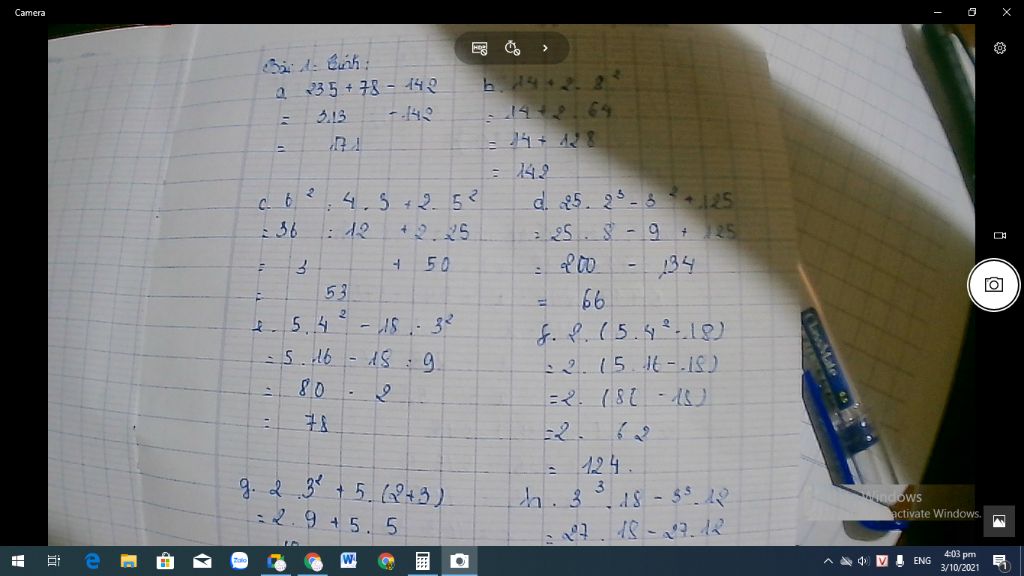 Camera
Bài 1: Tính:
a. 235 + 78 - 142
= 313 - 142
= 171
b. 14 + 2. 8²
= 14 + 2. 64
= 14 + 128
= 142
c. 6² : 4. 3 + 2. 5²
= 36 : 12 + 2. 25
= 3 + 50
= 53
d. 25. 2³ - 3² + 125
= 25. 8 - 9 + 125
= 200 - 134
= 66
e. 5. 4² - 18 : 3²
= 5. 16 - 18 : 9
= 80 - 2
= 78
f. 2. (5. 4² - 18)
= 2. (5. 16 - 18)
= 2. (80 - 18)
= 2. 62
= 124.
g. 2. 3² + 5. (2+3)
= 2. 9 + 5. 5
h. 3³. 18 - 3³. 12
= 27. 18 - 27. 12
Windows
activate Windows.
Zalo
V
ENG
4:03 pm
3/10/2021
1